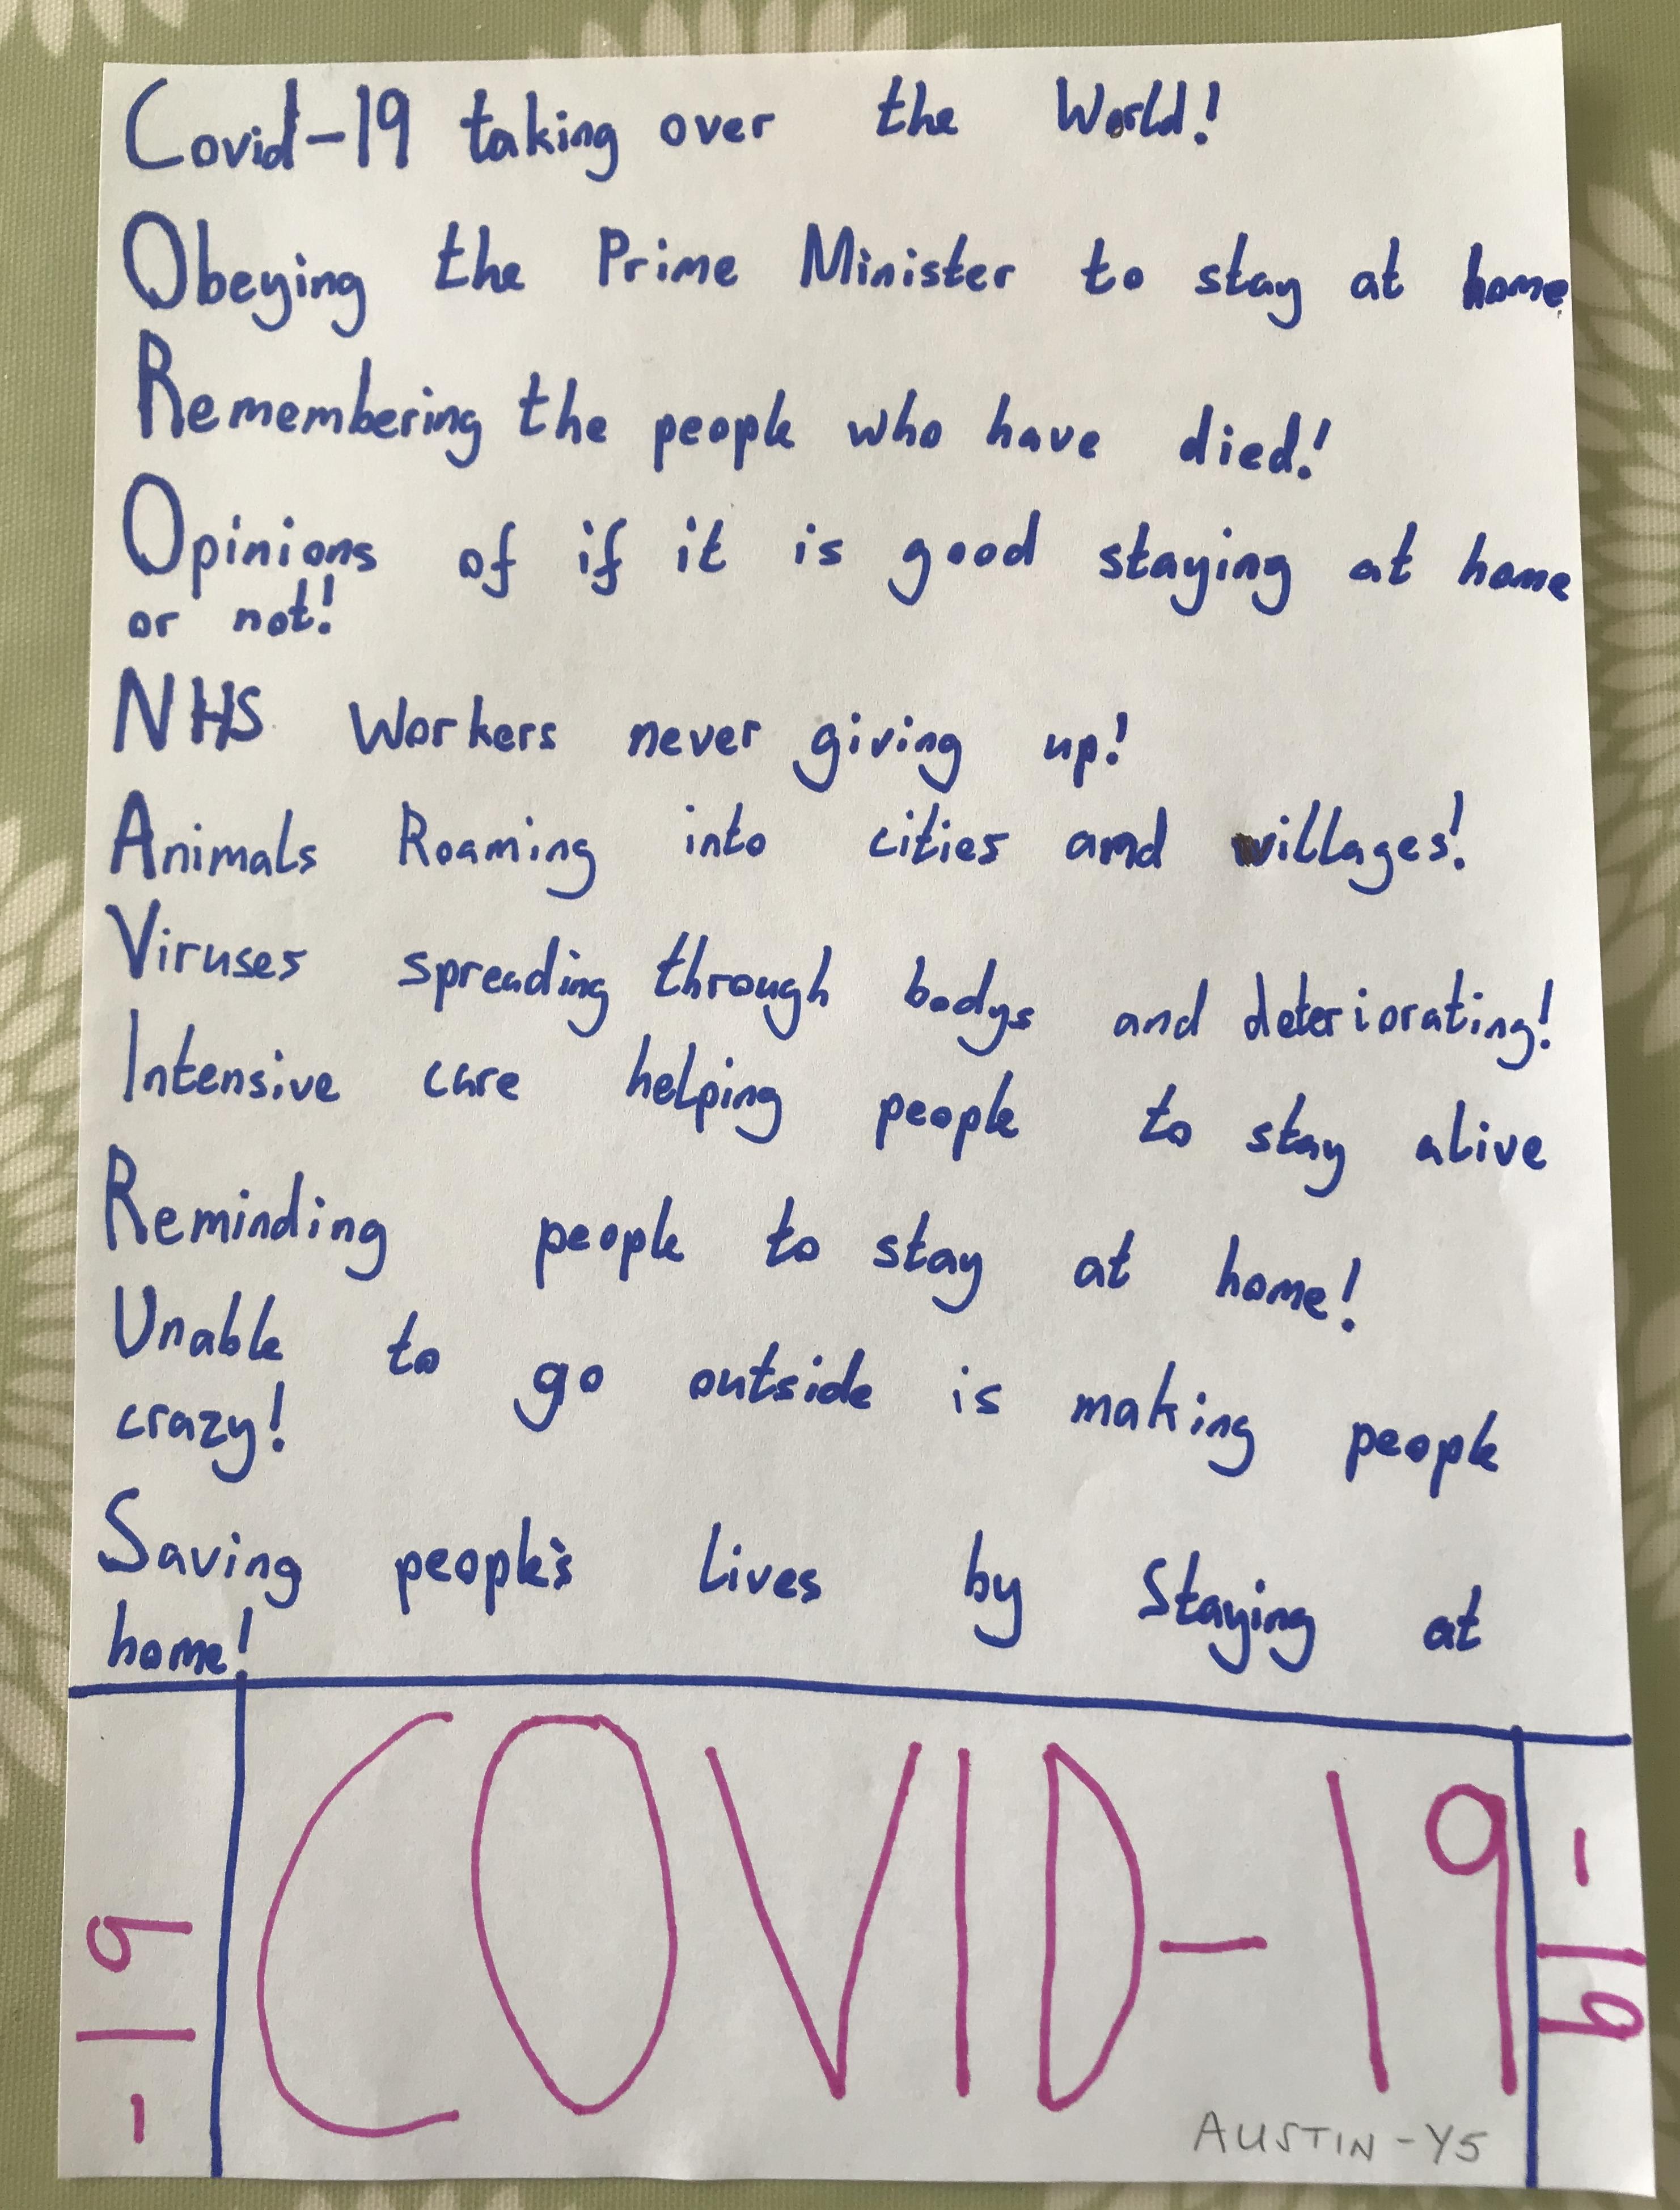 Covid-19 taking over the World!
Obeying the Prime Minister to stay at home.
Remembering the people who have died!
Opinions of if it is good staying at home
or not!
NHS Workers never giving up!
Animals Roaming into cities and villages!
Viruses spreading through bodys and deteriorating!
Intensive care helping people to stay alive
Reminding people to stay at home!
Unable to go outside is making people
crazy!
Saving people's lives by Staying at
home!
-19
COVID-19
-19
AUSTIN-Y5